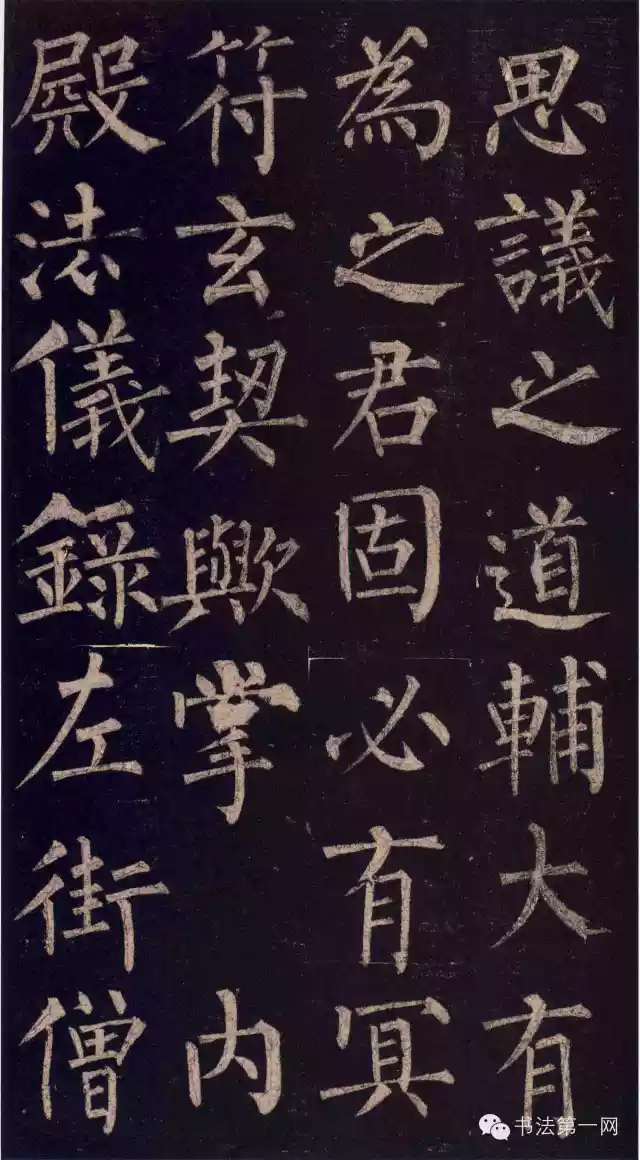 思議之道輔大有
為之君固必有冥
符玄契歟掌內
殿法儀錄左街僧
书法第一网